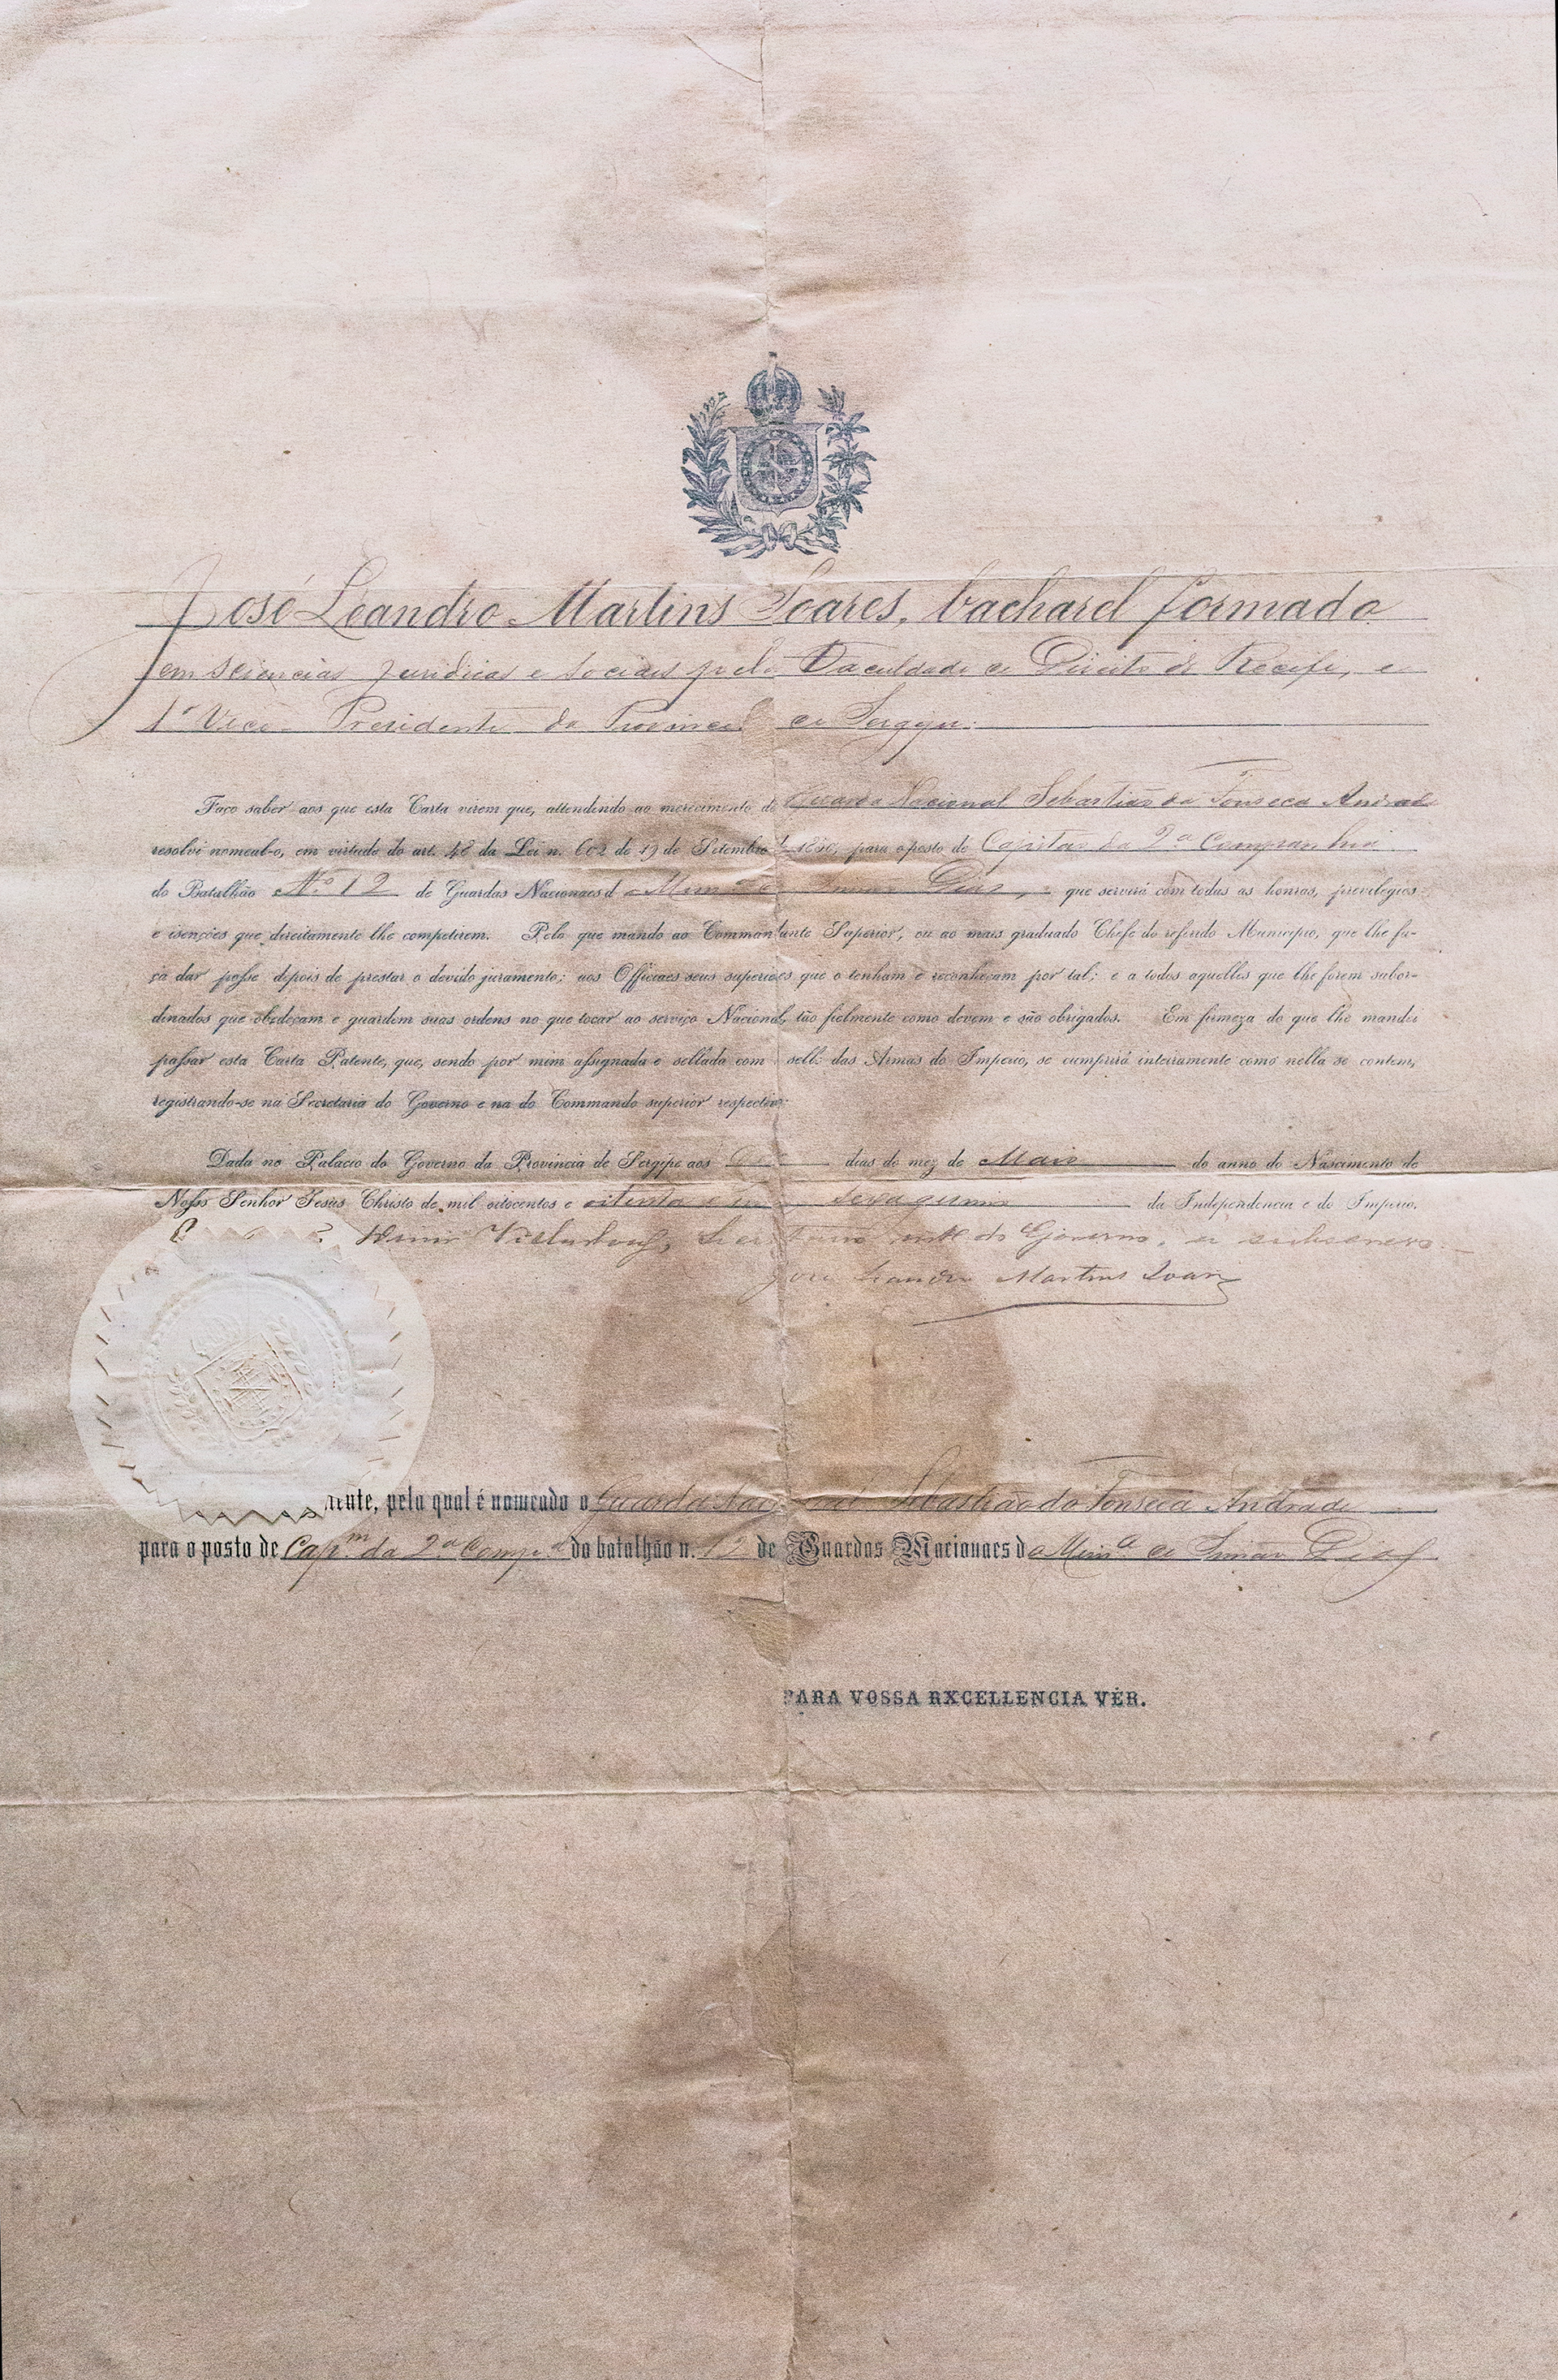 José Leandro Martins Soares, bacharel formado
em sciencias juridicas e sociaes pela Faculdade de Direito do Recife, e
1º Vice-Presidente da Provincia de Sergipe.
Faço saber aos que esta Carta virem que, attendendo ao merecimento do Guarda Nacional Sebastião da Fonseca Andrade
resolvi nomeal-o, em virtude do art. 48 da Lei n. 602 de 19 de Setembro de 1850, para o posto de Capitão da 2ª Companhia
do Batalhão Nº 12 de Guardas Nacionaes d Simão Dias, que servirá com todas as honras, previlegios
e isenções que direitamente lhe competirem. Pelo que mando ao Commandante Superior, ou ao mais graduado Chefe do referido Municipio, que lhe fa-
ça dar posse depois de prestar o devido juramento; aos Officiaes seus superiores que o tenham e reconheçam por tal; e a todos aquelles que lhe forem subor-
dinados que obedeçam e guardem suas ordens no que tocar ao serviço Nacional, tão fielmente como devem e são obrigados. Em firmeza do que lhe mandei
passar esta Carta Patente, que, sendo por mim assignada e sellada com sello das Armas do Imperio, se cumprirá inteiramente como nella se contem,
registrando-se na Secretaria do Governo e na do Commando superior respectivo.
Dada no Palacio do Governo da Provincia de Sergipe aos dias do mez de Maio do anno do Nascimento de
Nosso Senhor Jesus Christo de mil oitocentos e oitenta e sexagesimo da Independencia e do Imperio.
do Governo, a subscrevo.
José Leandro Martins Soares
nente, pela qual é nomeado o Guarda Nacional Sebastião da Fonseca Andrade
para o posto de Capm da 2ª Compª do batalhão n. 12 de Guardas Nacionaes do Munº de Simão Dias
PARA VOSSA RXCELLENCIA VÊR.